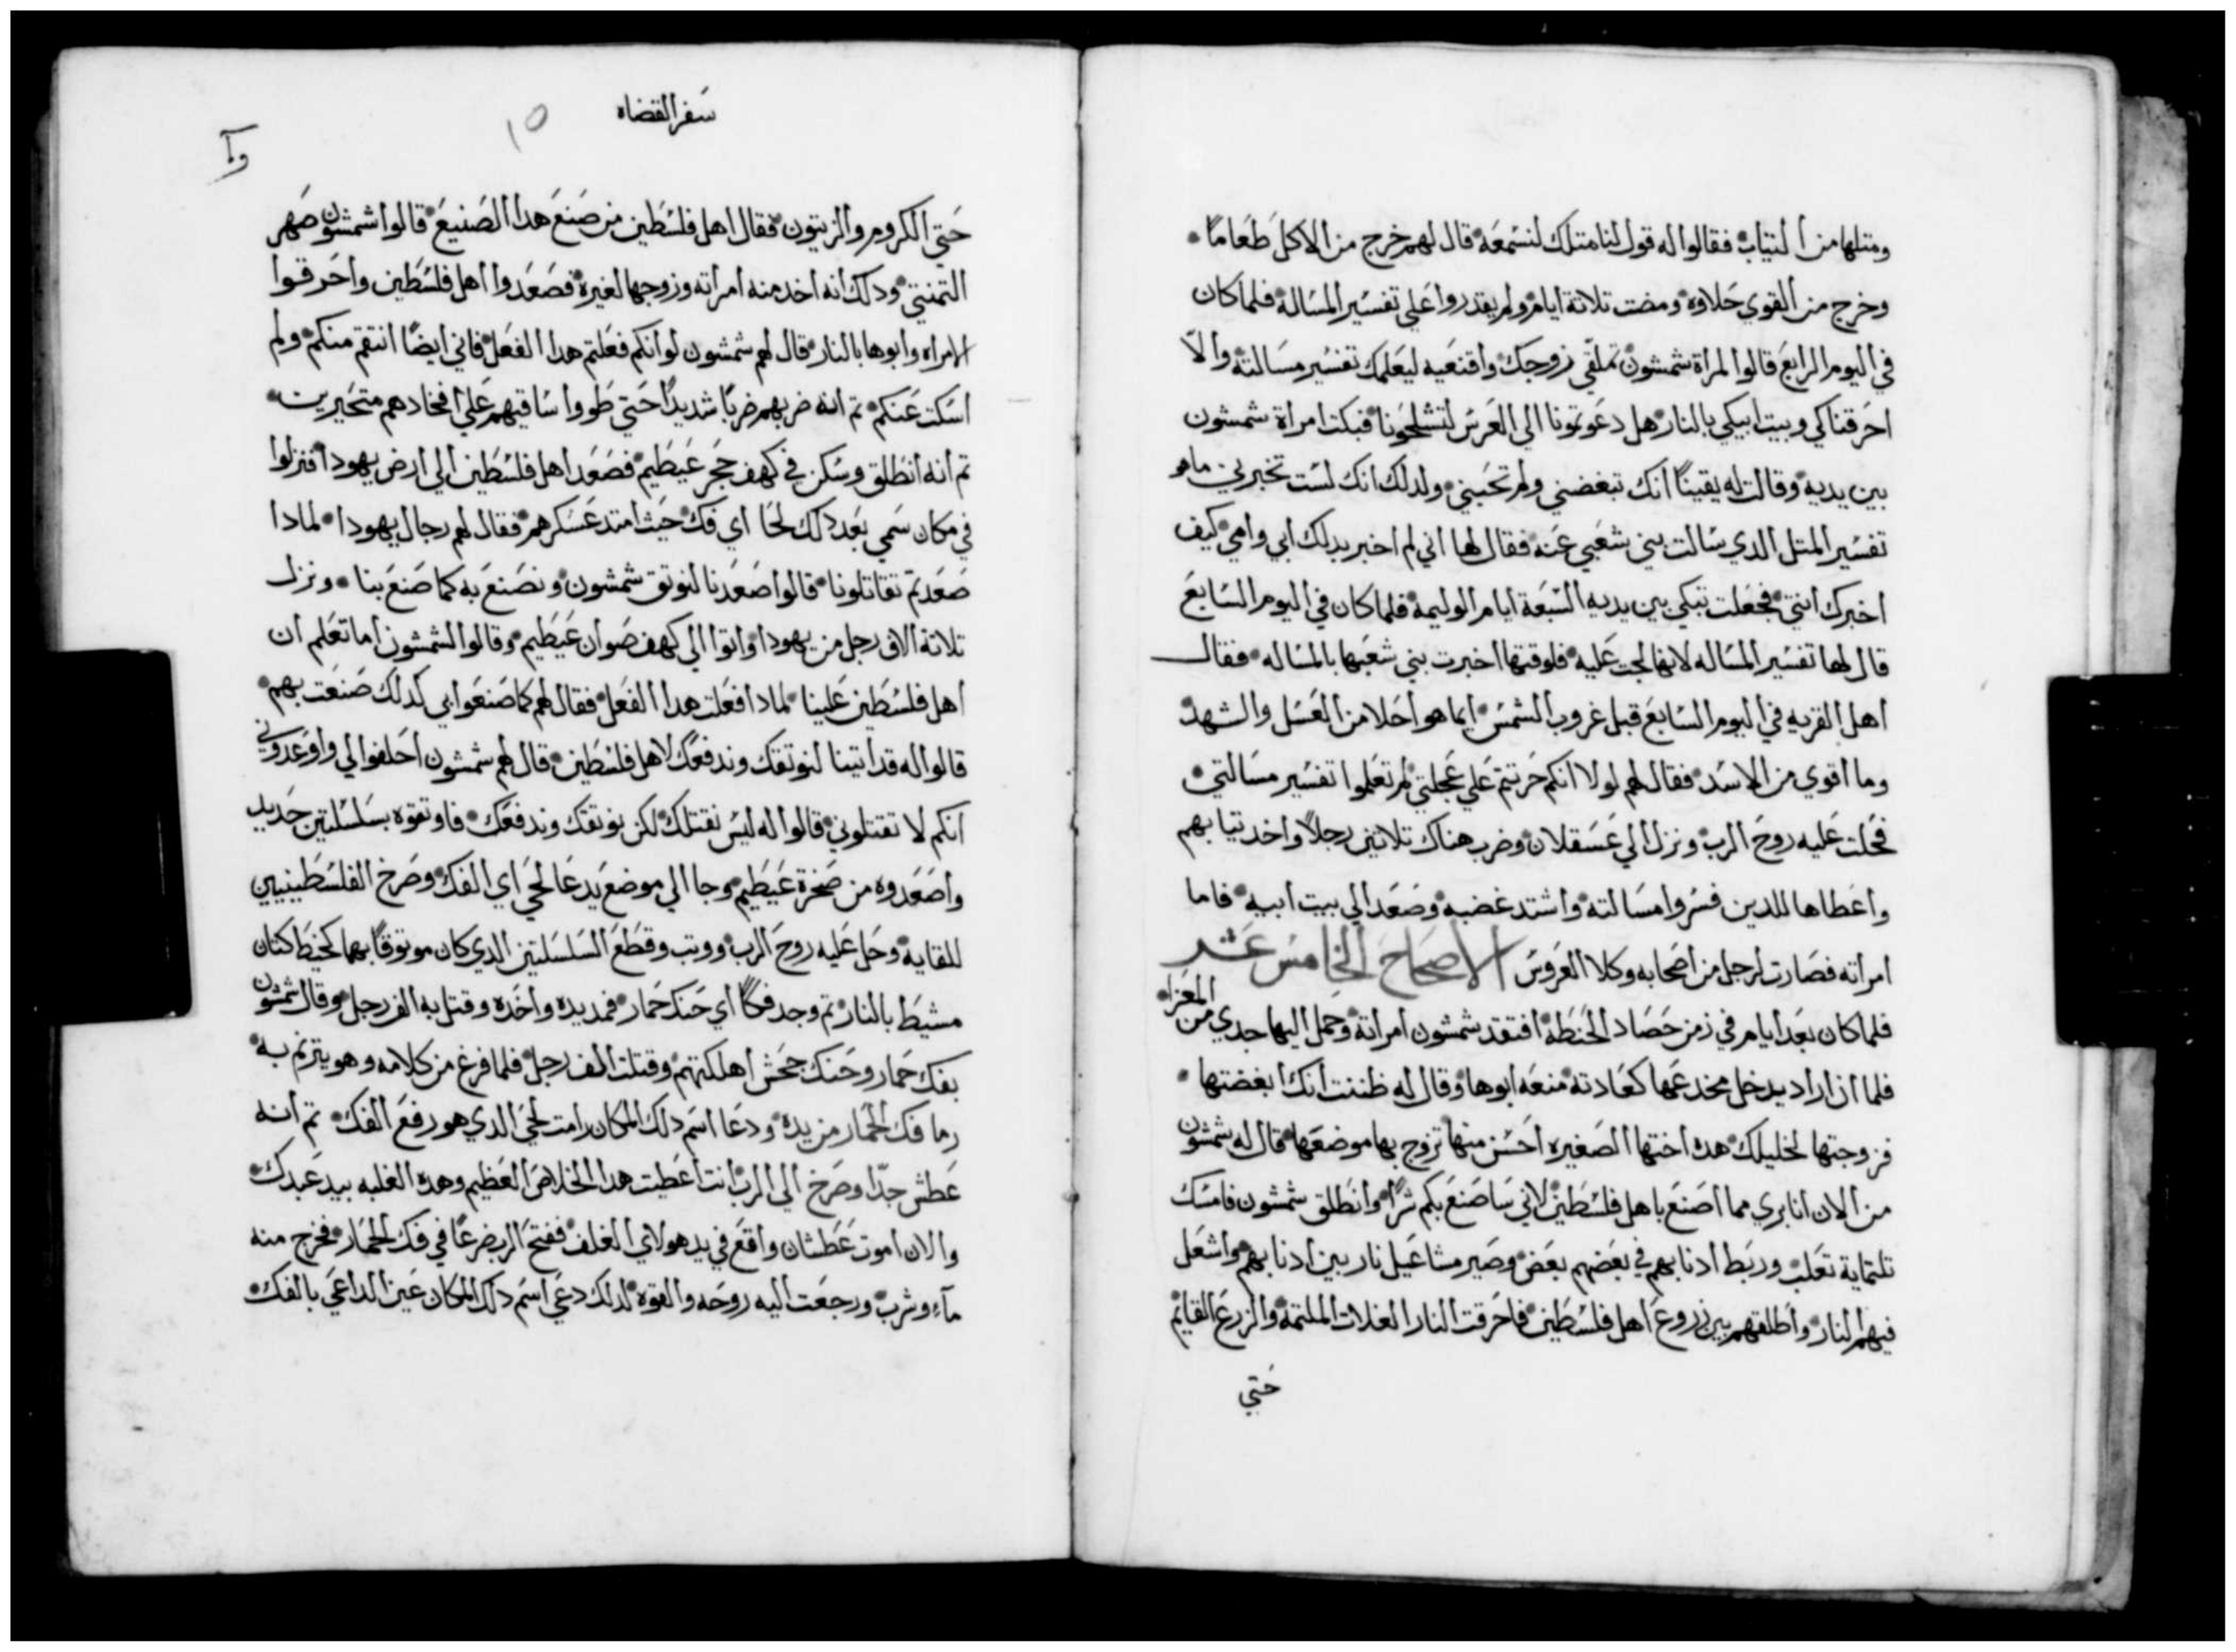 ومتلها من ألتياب فقالوا له قول لنا متلك لنسمعه قال لهم خرج من الاكل طعاماً
وخرج من القوي حلاوه ومضت تلاتة أيام ولم يقدروا علي تفسير المساله فلما كان
في اليوم الرابع قالوا لمرأة شمشون تملقي زوجك وأقنعيه ليعلمك تفسير مسالته وألّا
احرقناكي وبيت ابيكي بالنار هل دعوتمونا الي العرس لتشلحونا فبكت امراة شمشون
بين يديه وقالت له يقيناً أنك تبغضني ولم تحبني ولدلك انك لست تخبرني ما هو
تفسير المتل الدي سالت بني شعبي عنه فقال لها اني لم اخبر بدلك ابي وامي كيف
اخبرك انتي فجعلت تبكي بين يديه السبعة ايام الوليمه فلما كان في اليوم السابع
قال لها تفسير المساله لانها لجت عليه فلوقتها اخبرت بني شعبها بالمساله فقال
أهل القريه في اليوم السابع قبل غروب الشمس أيما هو أحلا من العسل والشهد
وما أقوي من الاسد فقال لهم لولا انكم حرتتم علي عجلتي لم تعلموا تفسير مسالتي
فحلت عليه روح الرب ونزل الي عسقلان وضرب هناك تلاتين رجلاً واخد تيابهم
وأعطاها للدين فسروا مسالته واشتد غضبه وصعد الي بيت أبيه فاما
امراته فصارت لرجل من أصحابه وكلا العروس الأصحاح الخامس عشر
فلما كان بعد أيام في زمن حصاد الحنطه افتقد شمشون أمراته وحمل اليها جدي من المعزا
فلما ان اراد يدخل مخدعها كعادته منعه ابوها وقال له ظننت انك أبغضتها
فزوجتها لخليلك هده أختها الصغيره أحسن منها تزوج بها موضعها قال له شمشون
من ألان أنا بري مما أصنع باهل فلسطين لاني ساصنع بكم شراً وأنطلق شمشون فامسك
تلتماية تعلب وربط أدنابهم في بعضهم بعض وصير مشاعيل نار بين أدنابهم واشعل
فيهم النار وأطلقهم بين زروع أهل فلسطين فاحرقت النار الغلات الملتمة والزرع القايم
حتي
سفر القضاه
١٥
حتي الكروم والزيتون فقال أهل فلسطين من صنع هدا الصنيع قالوا شمشون صهر
التمنتي ودلك أنه أخد منه أمراته وزوجها لغيره فصعدوا أهل فلسطين وأحرقوا
الامراه وابوها بالنار قال لهم شمشون لو انكم فعلتم هدا الفعل فاني ايضاً انتقم منكم ولم
اسكت عنكم تم انه ضربهم ضرباً شديداً حتي طووا ساقيهم علي أفخادهم متحيرين
تم أنه أنطلق وسكن في كهف حجر عيطيم فصعد أهل فلسطين الي أرض يهودا فنزلوا
في مكان سمي بعد دلك لحا أي فك حيت امتد عسكرهم فقال لهم رجال يهودا لمادا
صعدتم تقاتلونا قالوا صعدنا لنوتق شمشون ونصنع به كما صنع بنا ونزل
تلاتة الاف رجل من يهودا وأتوا الي كهف صوان عيطيم وقالوا لشمشون أما تعلم ان
أهل فلسطين علينا لمادا فعلت هدا الفعل فقال لهم كما صنعوا بي كدلك صنعت بهم
قالوا له قد أتينا لنوتقك وندفعك لاهل فلسطين قال لهم شمشون أحلفوا لي وأوعدوني
أنكم لا تقتلوني قالوا له ليس نقتلك لكن نوتقك وندفعك فاوتقوه بسلسلتين جديد
وأصعدوه من صخرة عيطيم وجا الي موضع يدعا لحي أي الفك وصرخ الفلسطينيين
للقايه وحل عليه روح الرب ووتب وقطع السلسلتين الدي كان موتوقاً بهما كخيط كتان
مشيط بالنار تم وجد فكاً أي حنك حمار فمد يده وأخده وقتل به الف رجل وقال شمشون
بفك حمار وحنك جحش أهلكتهم وقتلت ألف رجل فلما فرغ من كلامه وهو يترنم به
رما فك الحمار من يده ودعا أسم دلك المكان رامت لحي الدي هو رفع الفك تم أنه
عطش جدّاً وصرخ الي الرب انت أعطيت هدا الخلاص العظيم وهده الغلبه بيد عبدك
والان أموت عطشان وأقع في يد هولاي الغلف ففتح الرب ضرعاً في فك الحمار فخرج منه
مآء وشرب ورجعت اليه روحه والقوه لدلك دعي أسم دلك المكان عين الداعي بالفك